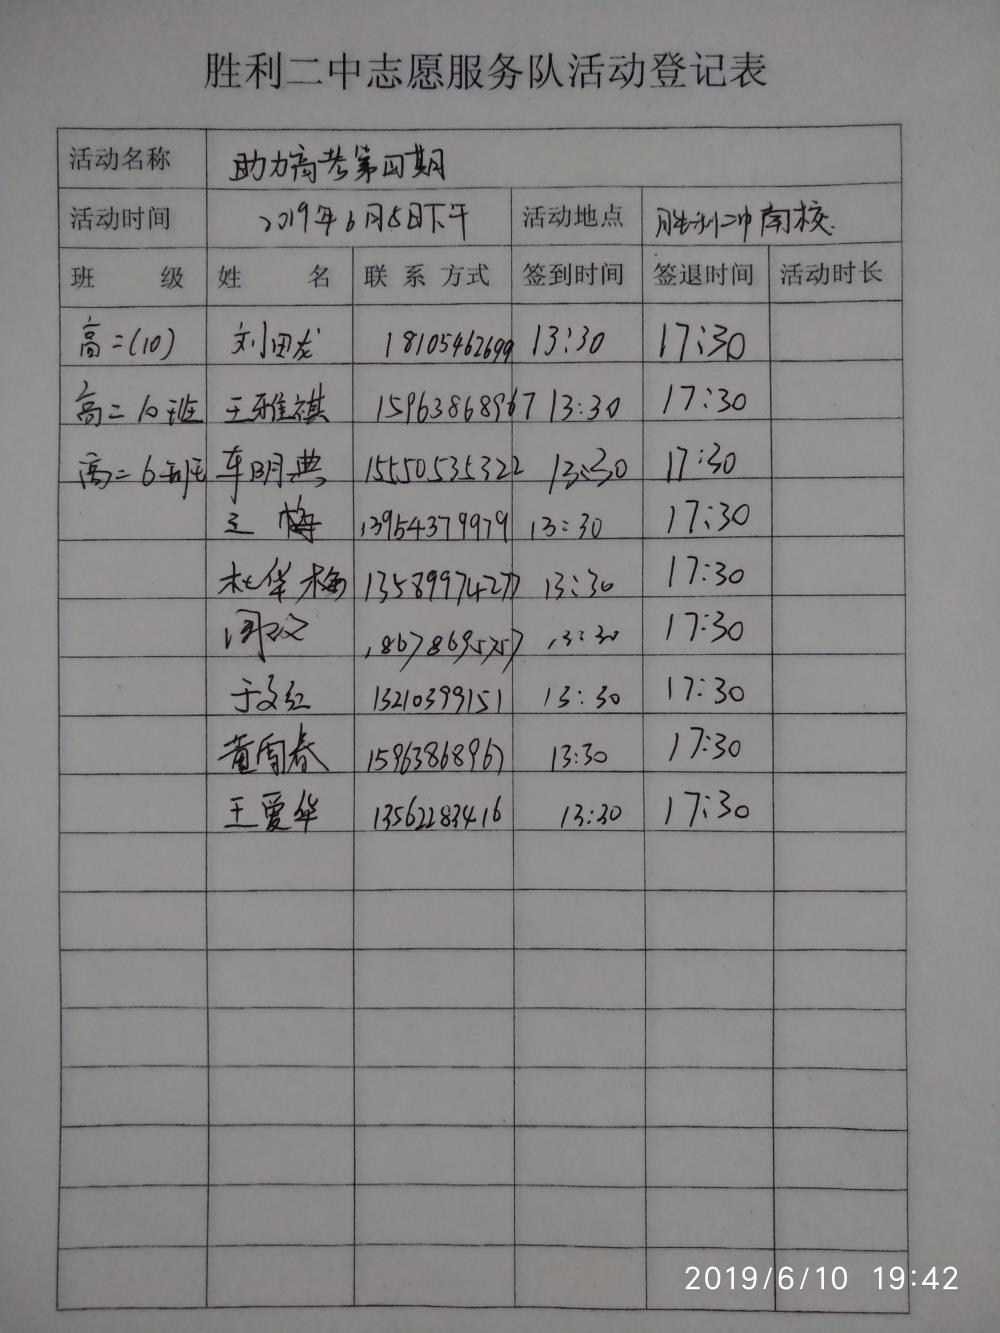 胜利二中志愿服务队活动登记表
活动名称 助力高考第四期
活动时间 2019年6月8日下午 活动地点 胜利二中南校
班 级 姓 名 联 系 方式 签到时间 签退时间 活动时长
高二(10) 刘田龙 18105462699 13:30 17:30
高二10班 王雅祺 15963868967 13:30 17:30
高二6班 车明典 15550535322 13:30 17:30
梅 13954379979 13:30 17:30
杜华梅 13589974277 13:30 17:30
周 18678695757 13:30 17:30
于文红 13210399151 13:30 17:30
黄雷春 15963868967 13:30 17:30
王爱华 13562283416 13:30 17:30
2019/6/10 19:42